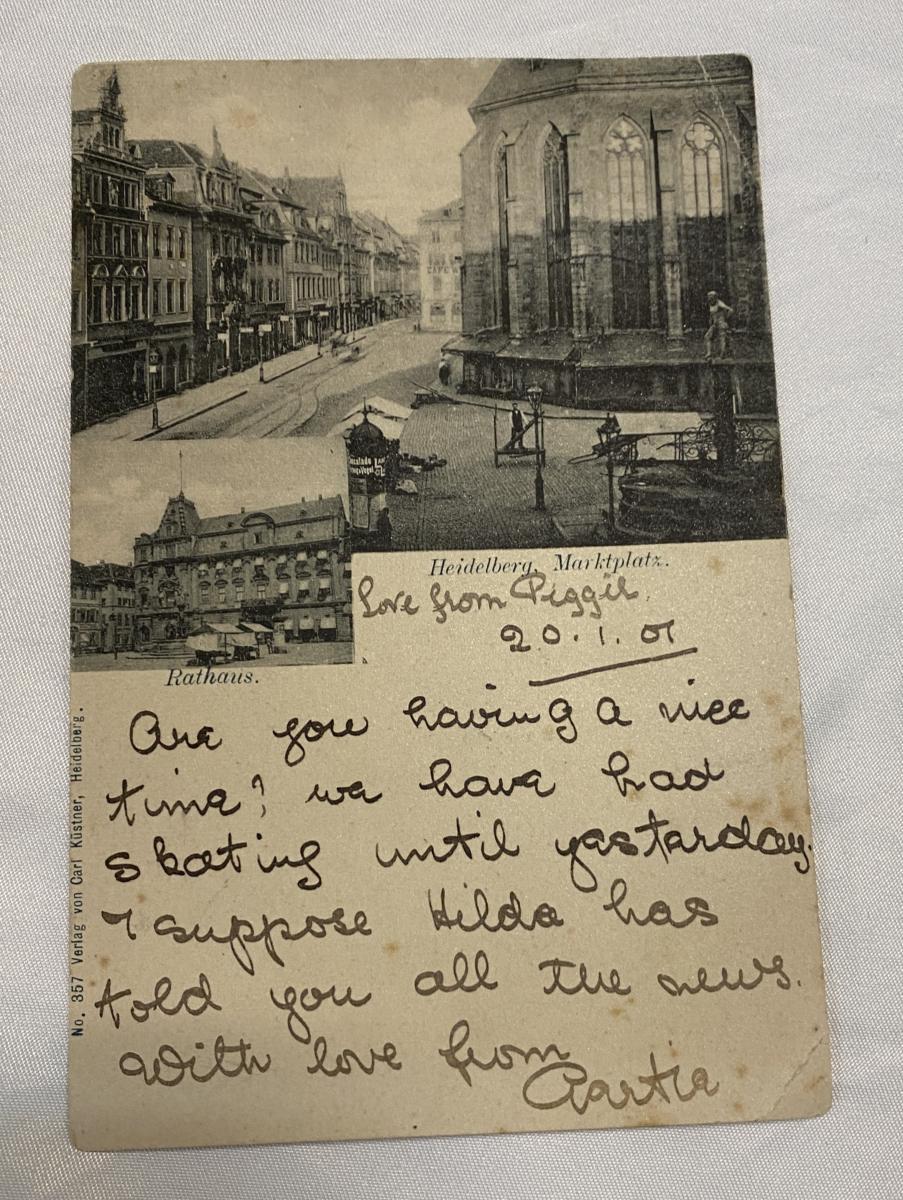 CAFE
Heidelberg, Marktplatz.
Love from Piggie.
20.1.01
Rathaus.
Are you having a nice
time? we have had
skating until yesterday.
I suppose Hilda has
told you all the news.
With love from
No. 357 Verlag von Carl Küstner, Heidelberg.